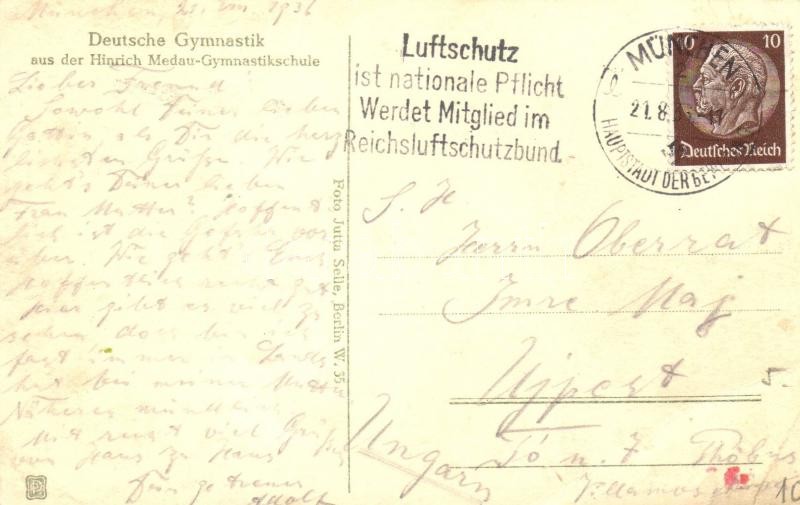 München, 21. VIII 1936
Deutsche Gymnastik
aus der Hinrich Medau-Gymnastikschule
Lieber Freund!
Sowohl Deiner lieben
Gattin als Dir die herz
lichsten Grüße. Wie
geht's Deiner lieben
Frau Mutter? Hoffent
lich ist die Gefahr vor
über. Wie geht's Euch
hoffentlich recht gut
Hier gibt es viel zu
sehen doch bin ich
fast immer im
bei meiner Mutter
Näheres mündlich
Mit recht viel Grüßen
von Haus zu Haus
Dein getreuer
Adolf
Foto Jutta Selle, Berlin W. 35
Luftschutz
ist nationale Pflicht
Werdet Mitglied im
Reichsluftschutzbund
MÜNCHEN
21.8.
HAUPTSTADT DER BEW
10
Deutsches Reich
S. H
Herrn Oberrat
Imre Maj
Ujpest
5.
Ungarn
Tó u. 7
10